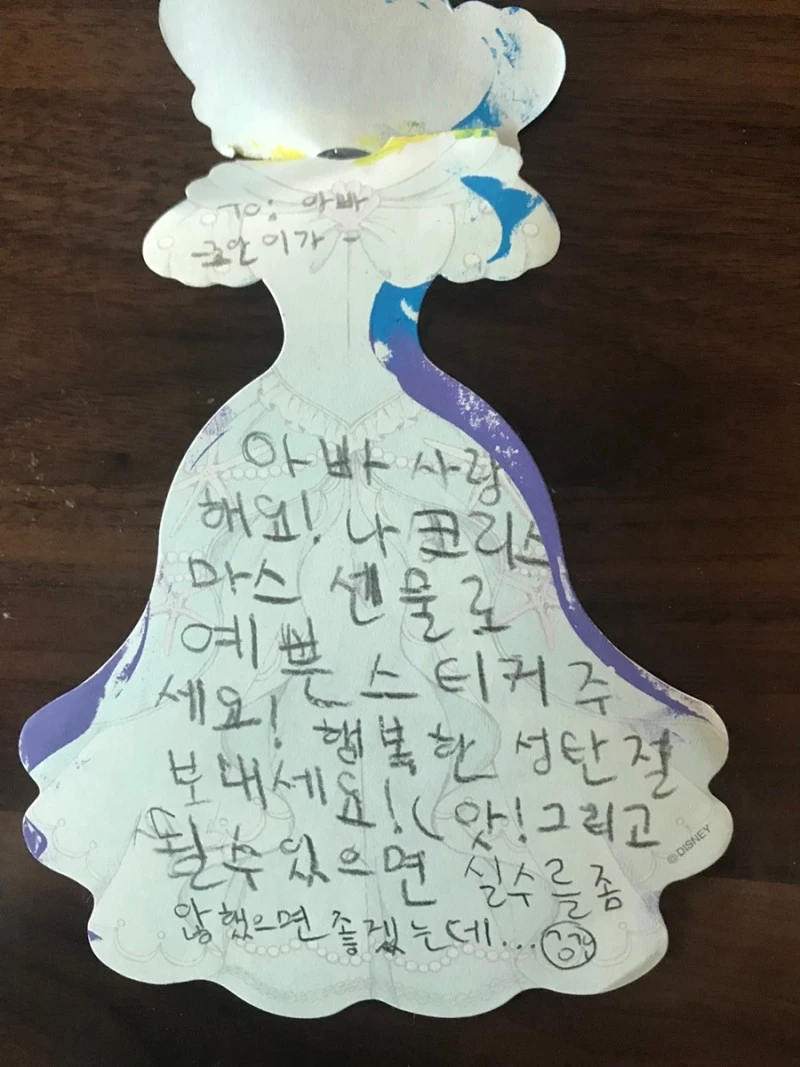 TO: 아빠
이가 -
아빠 사랑
해요! 나 크리스
마스 센물로
예쁜 스티커 주
세요! 행복한 성탄절
보내세요! (앗! 그리고
될 수 있으면 실수를 좀
않했으면 좋겠는데...
©DISNEY